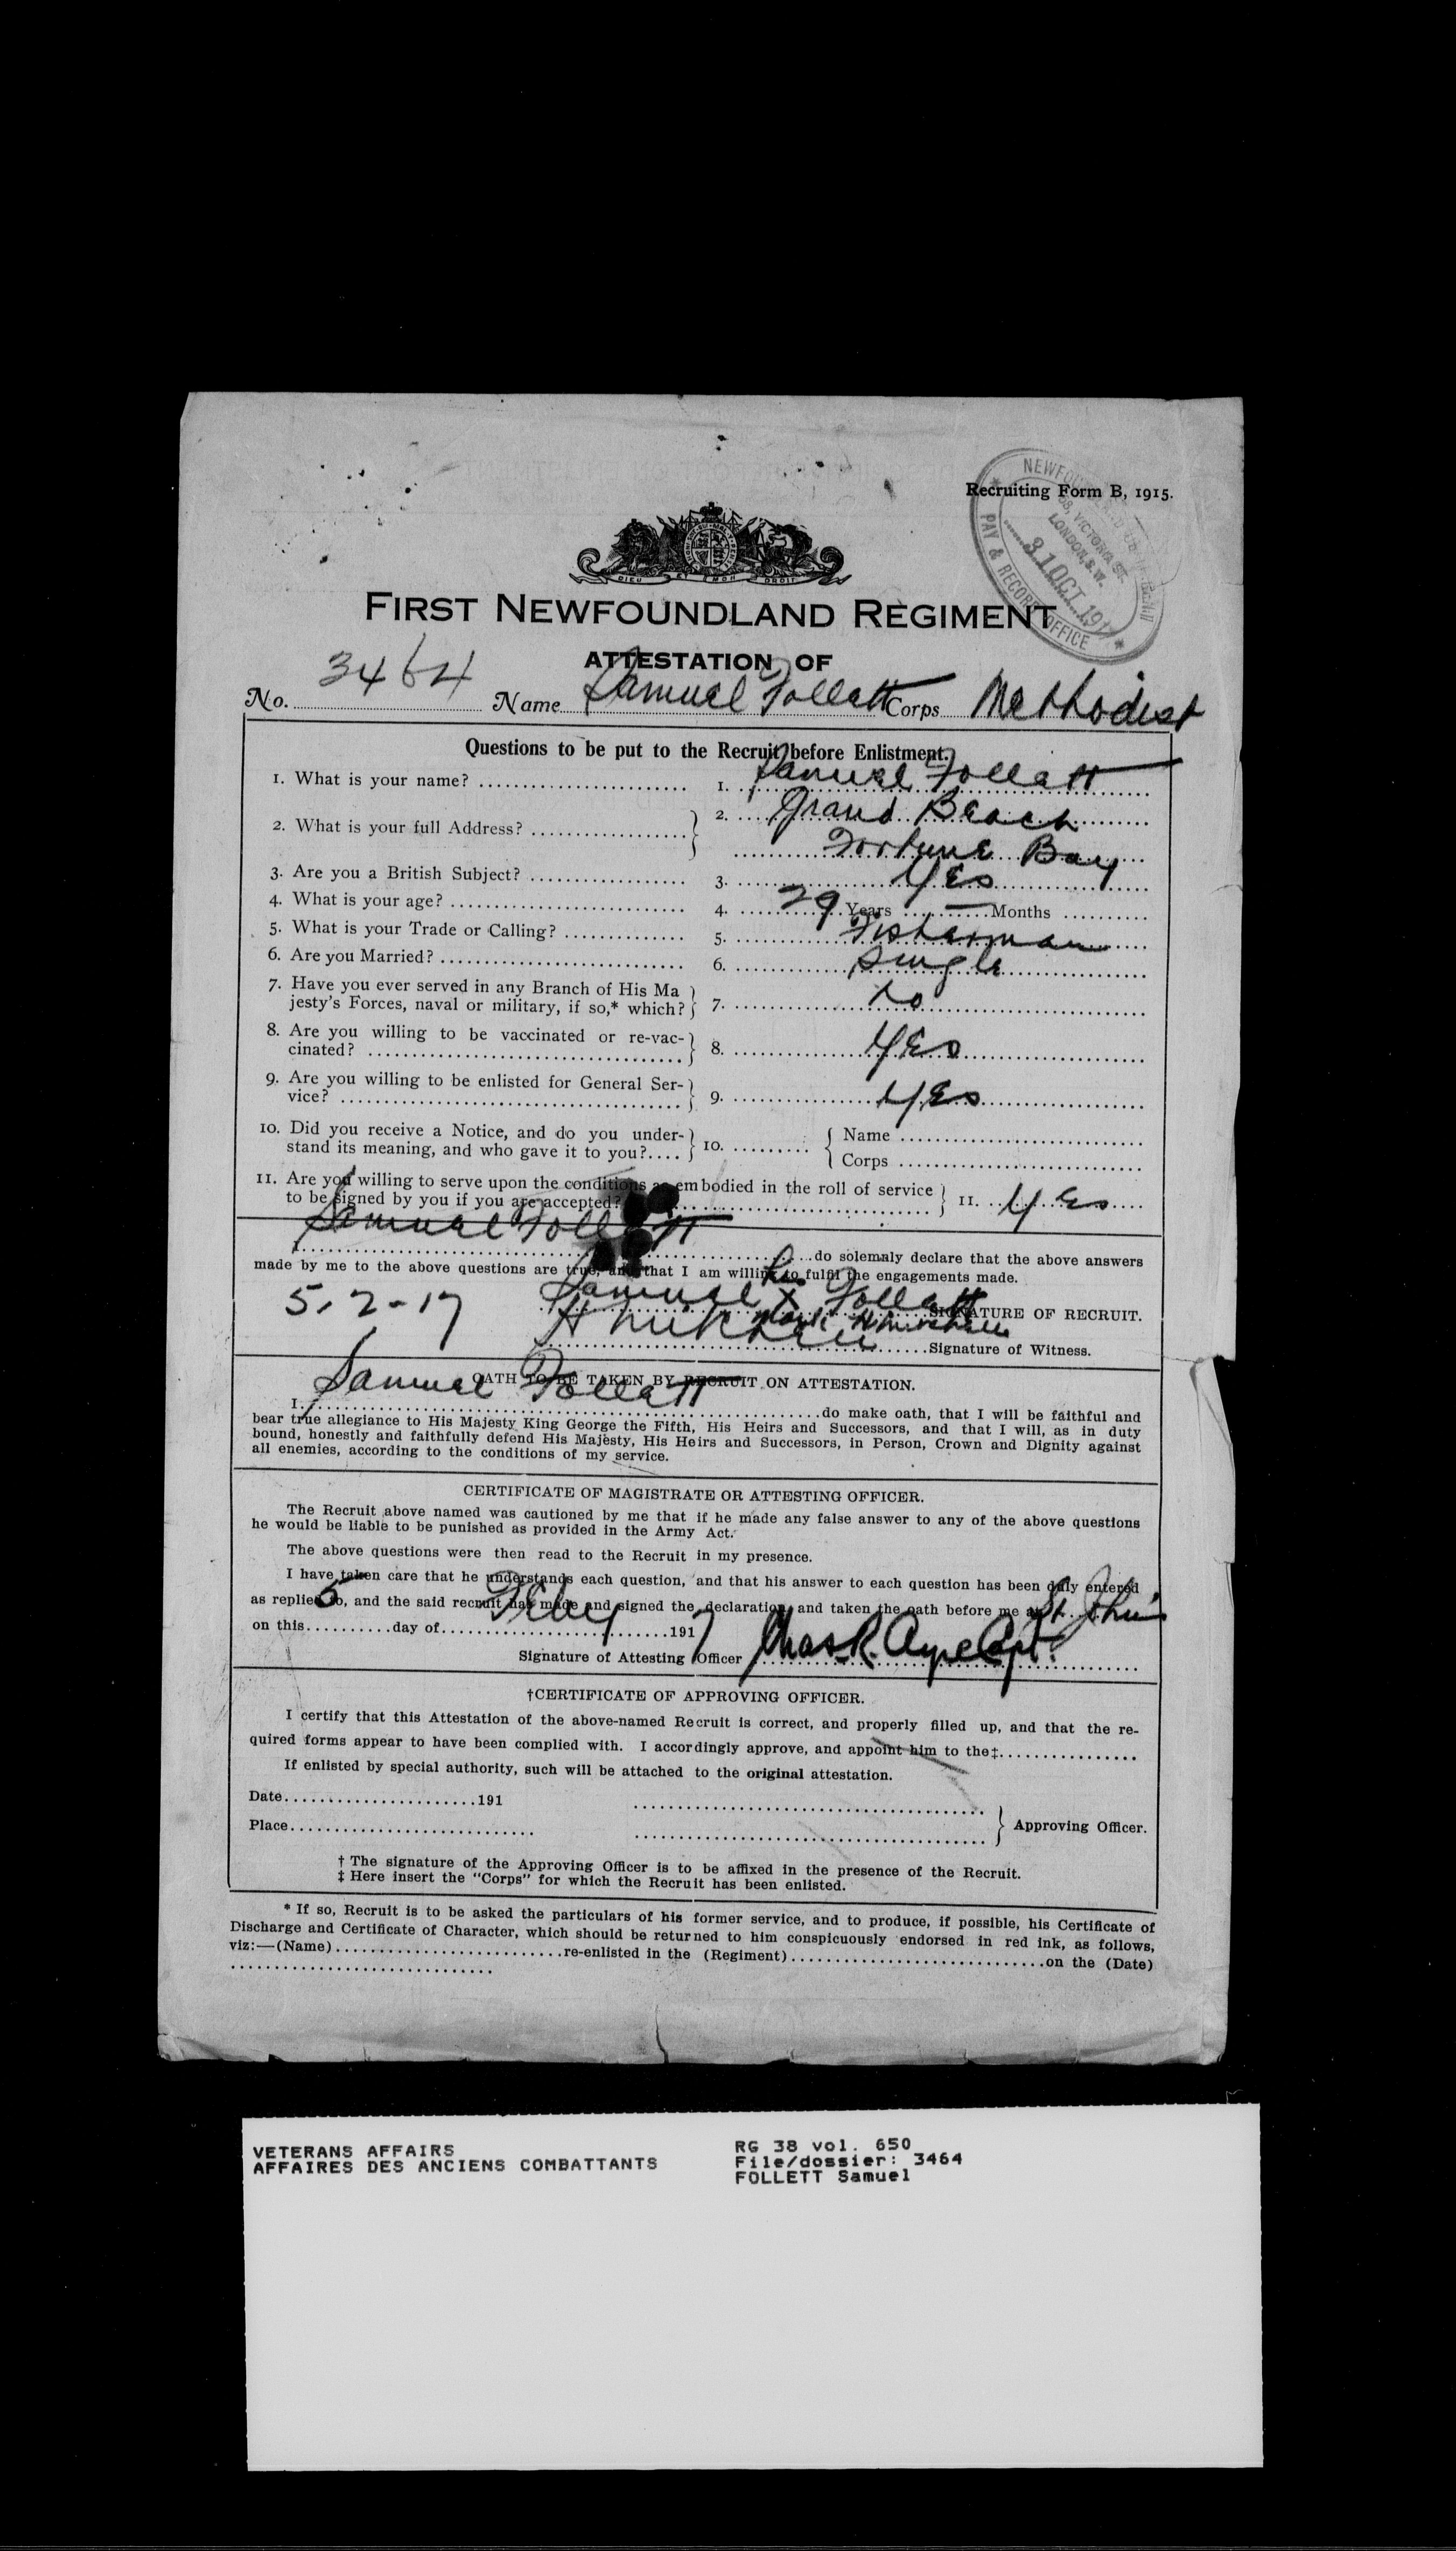 Recruiting Form B, 1915.
PAY & RECORD OFFICE
58, VICTORIA ST.
LONDON, S.W.
31 OCT 191
DIEU ET MON DROIT
FIRST NEWFOUNDLAND REGIMENT
ATTESTATION OF
No. 3464 Name Samuel Follatt Corps Methodist
Questions to be put to the Recruit before Enlistment.
1. What is your name? 1. Samuel Follatt
2. What is your full Address? 2. Grand Beach
Fortune Bay
3. Are you a British Subject? 3. Yes
4. What is your age? 4. 29 Years — Months
5. What is your Trade or Calling? 5. Fisherman
6. Are you Married? 6. Single
7. Have you ever served in any Branch of His Ma
jesty's Forces, naval or military, if so,* which? 7. No
8. Are you willing to be vaccinated or re-vac-
cinated? 8. Yes
9. Are you willing to be enlisted for General Ser-
vice? 9. Yes
10. Did you receive a Notice, and do you under-
stand its meaning, and who gave it to you?.... 10. Name
Corps
11. Are you willing to serve upon the conditions as embodied in the roll of service
to be signed by you if you are accepted? 11. Yes
I Samuel Follatt do solemnly declare that the above answers
made by me to the above questions are true, and that I am willing to fulfil the engagements made.
5-2-17 Samuel his X mark Follatt SIGNATURE OF RECRUIT.
Signature of Witness.
OATH TO BE TAKEN BY RECRUIT ON ATTESTATION.
I, Samuel Follatt do make oath, that I will be faithful and
bear true allegiance to His Majesty King George the Fifth, His Heirs and Successors, and that I will, as in duty
bound, honestly and faithfully defend His Majesty, His Heirs and Successors, in Person, Crown and Dignity against
all enemies, according to the conditions of my service.
CERTIFICATE OF MAGISTRATE OR ATTESTING OFFICER.
The Recruit above named was cautioned by me that if he made any false answer to any of the above questions
he would be liable to be punished as provided in the Army Act.
The above questions were then read to the Recruit in my presence.
I have taken care that he understands each question, and that his answer to each question has been duly entered
as replied to, and the said recruit has made and signed the declaration and taken the oath before me at St. John's
on this 5 day of Feby 1917
Signature of Attesting Officer Chas. R. Ayre Capt.
†CERTIFICATE OF APPROVING OFFICER.
I certify that this Attestation of the above-named Recruit is correct, and properly filled up, and that the re-
quired forms appear to have been complied with. I accordingly approve, and appoint him to the‡
If enlisted by special authority, such will be attached to the original attestation.
Date 191
Place Approving Officer.
† The signature of the Approving Officer is to be affixed in the presence of the Recruit.
‡ Here insert the "Corps" for which the Recruit has been enlisted.
* If so, Recruit is to be asked the particulars of his former service, and to produce, if possible, his Certificate of
Discharge and Certificate of Character, which should be returned to him conspicuously endorsed in red ink, as follows,
viz:—(Name) re-enlisted in the (Regiment) on the (Date)
VETERANS AFFAIRS
AFFAIRES DES ANCIENS COMBATTANTS
RG 38 vol. 650
File/dossier: 3464
FOLLETT Samuel